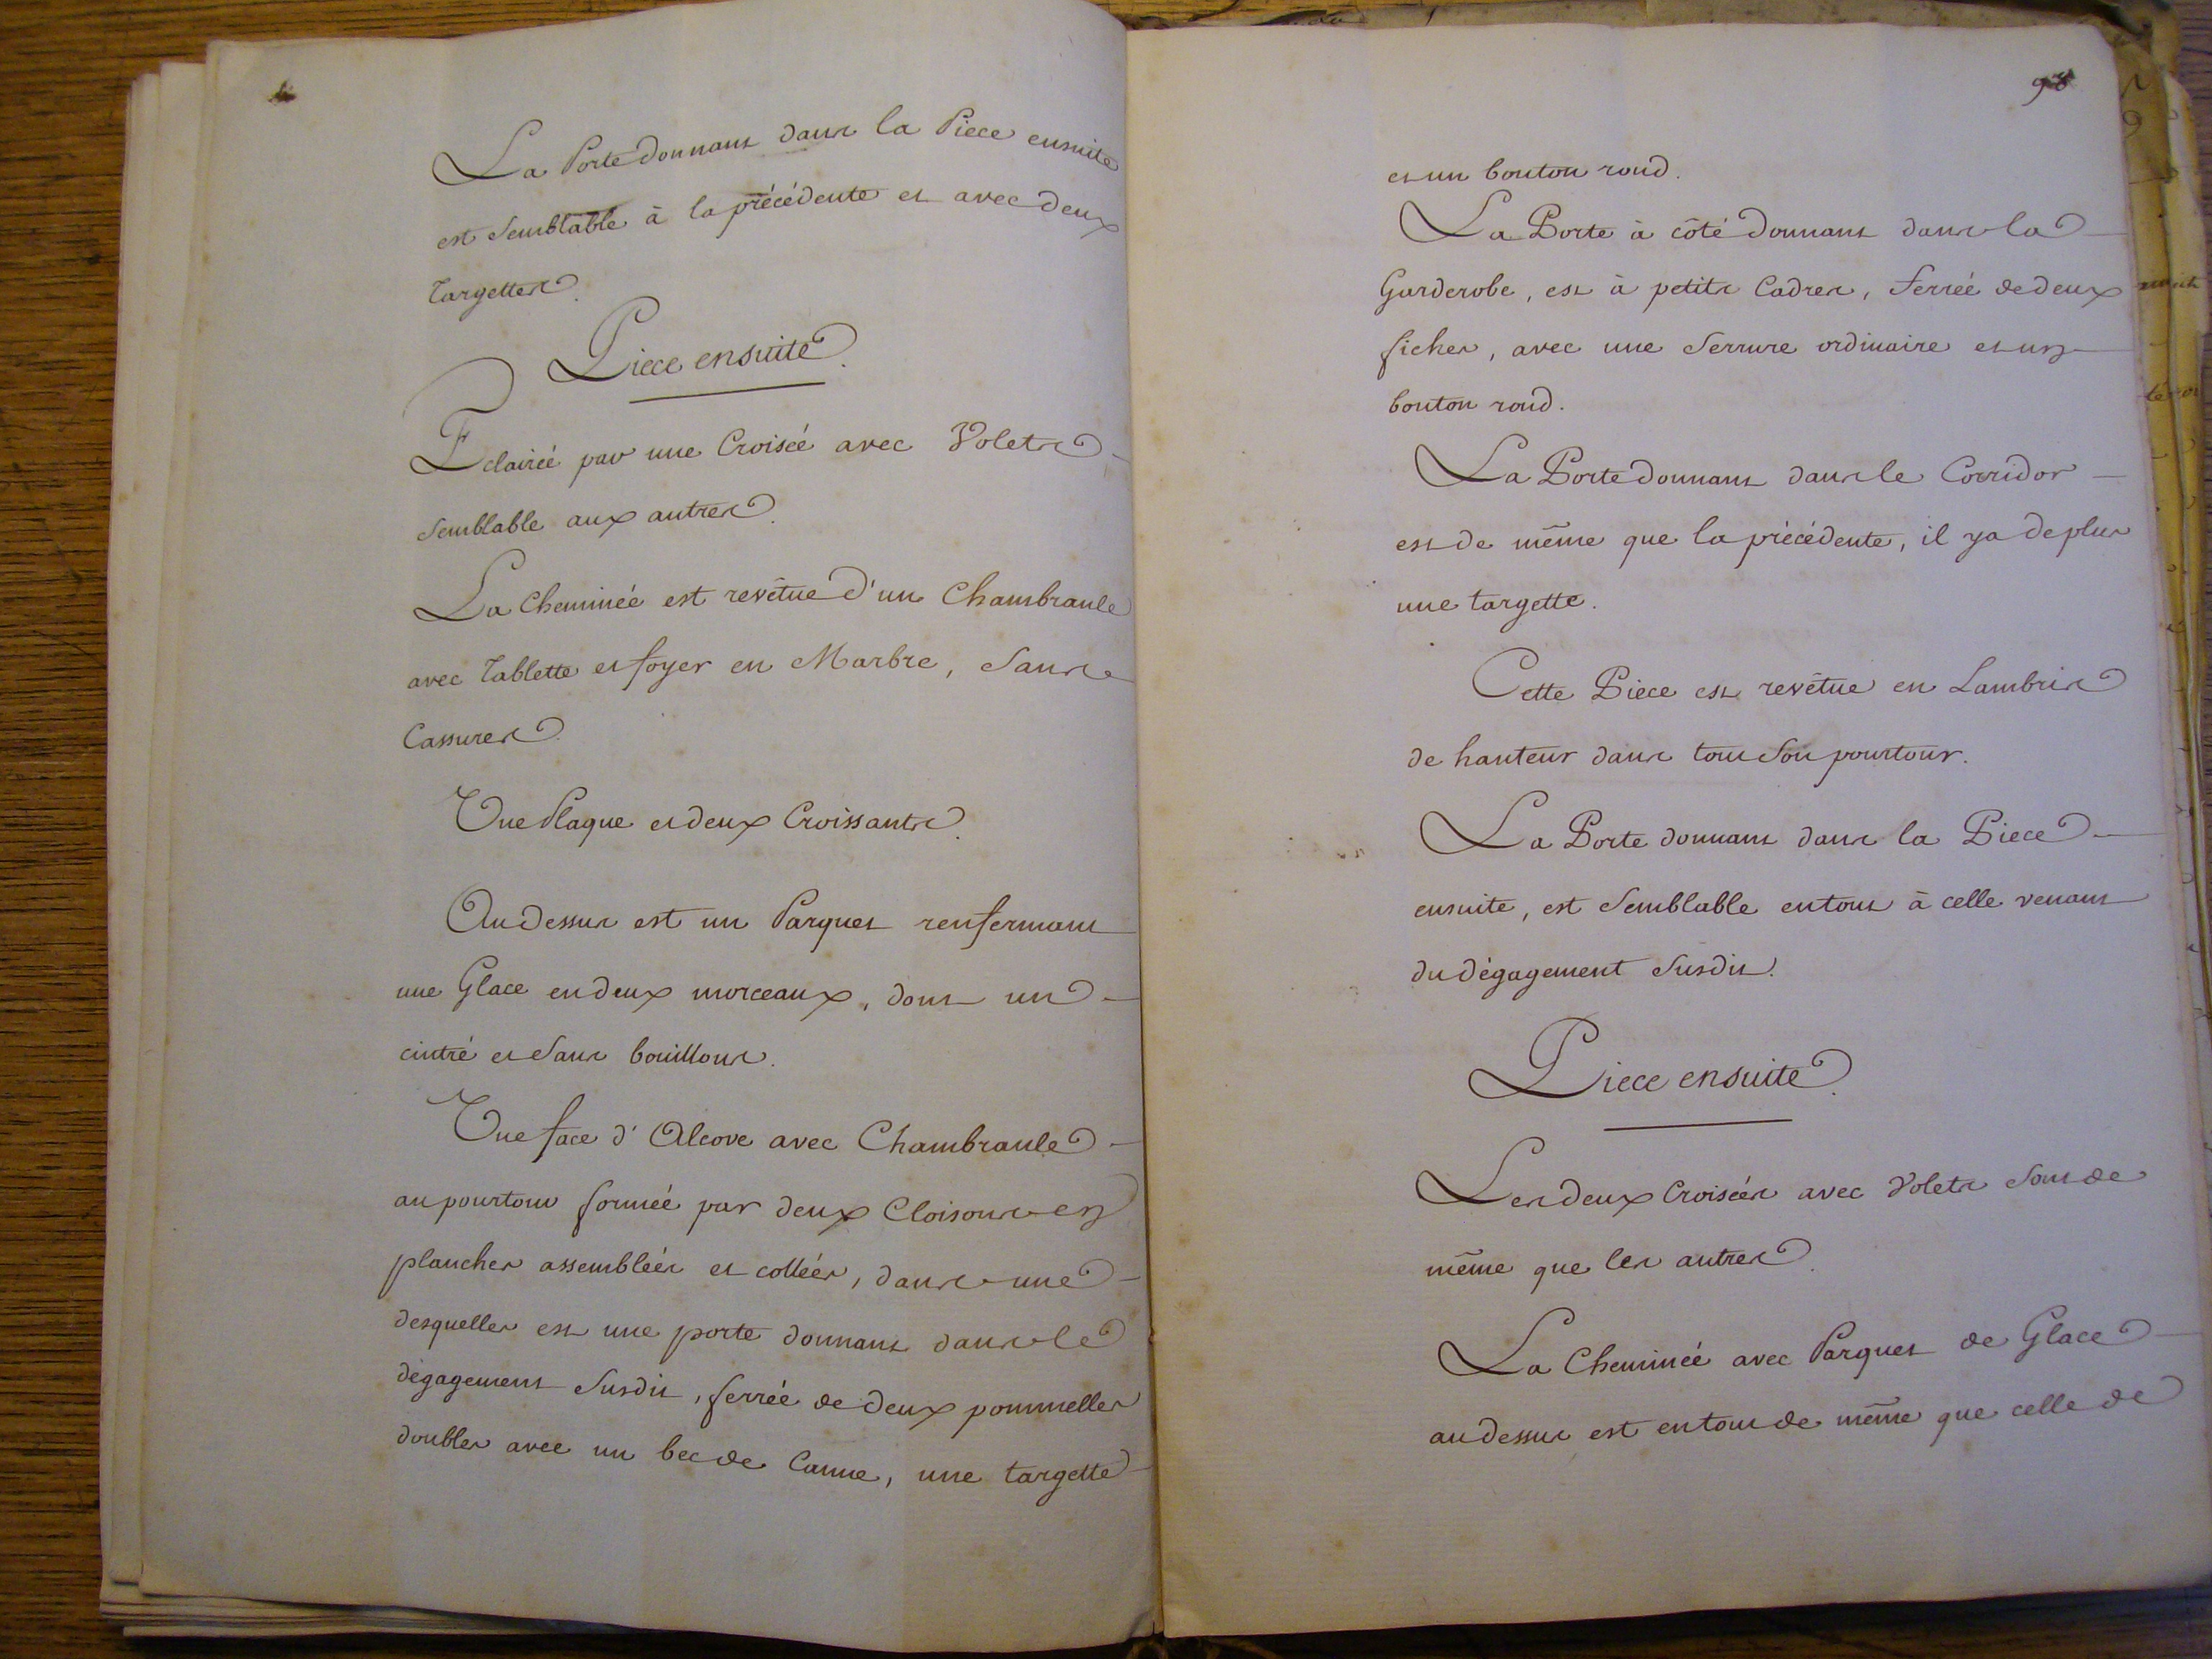 La Porte donnant dans la Piece ensuite
est Semblable à la précédente et avec deux
Targettes.
Piece ensuite.
Eclairée par une Croisée avec Volets
Semblable aux autres.
La Cheminée est revêtue d'un Chambranle
avec Tablette et foyer en Marbre, Sans
Cassures.
Une Plaque et deux Croissants.
Au dessus est un Parquet renfermant
une Glace en deux morceaux, dont un
cintré et Sans bouillons.
Une face d'Alcove avec Chambranle
au pourtour formée par deux Cloisons en
planches assemblées et collées, dans une
desquelles est une porte donnant dans le
dégagement Susdit, ferrée de deux pommelles
doubles avec un bec de Canne, une targette
98
et un bouton rond.
La Porte à côté donnant dans la
Garderobe, est à petits Cadres, ferrée de deux
fiches, avec une Serrure ordinaire et un
bouton rond.
La Porte donnant dans le Corridor
est de même que la précédente, il y a de plus
une targette.
Cette Piece est revêtue en Lambris
de hauteur dans tout Son pourtour.
La Porte donnant dans la Piece
ensuite, est Semblable en tout à celle venant
du dégagement Susdit.
Piece ensuite.
Les deux Croisées avec Volets Sont de
même que les autres.
La Cheminée avec Parquet de Glace
au dessus est en tout de même que celle de